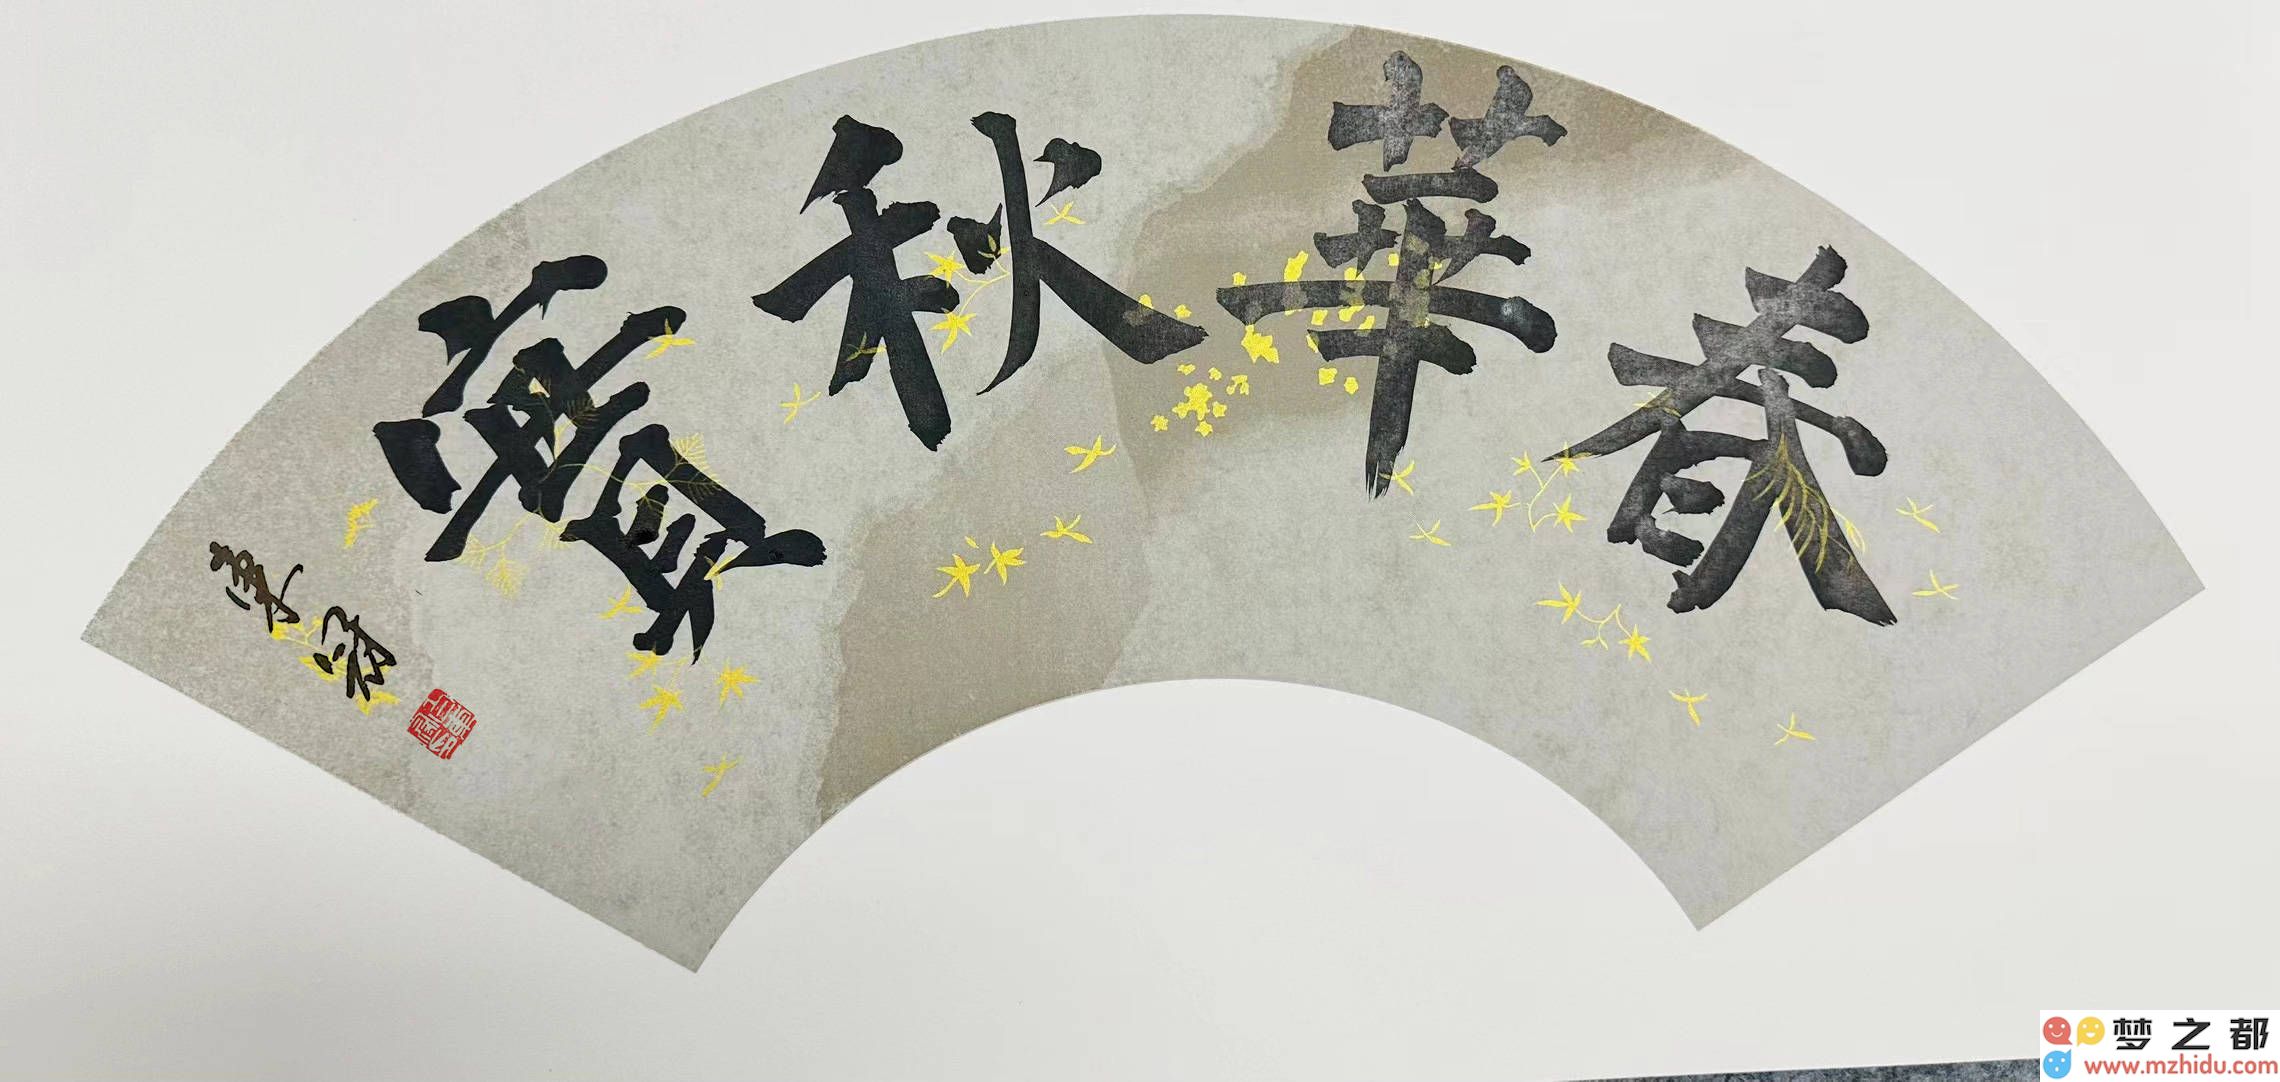 春華秋實
梦之都
www.mzhidu.com